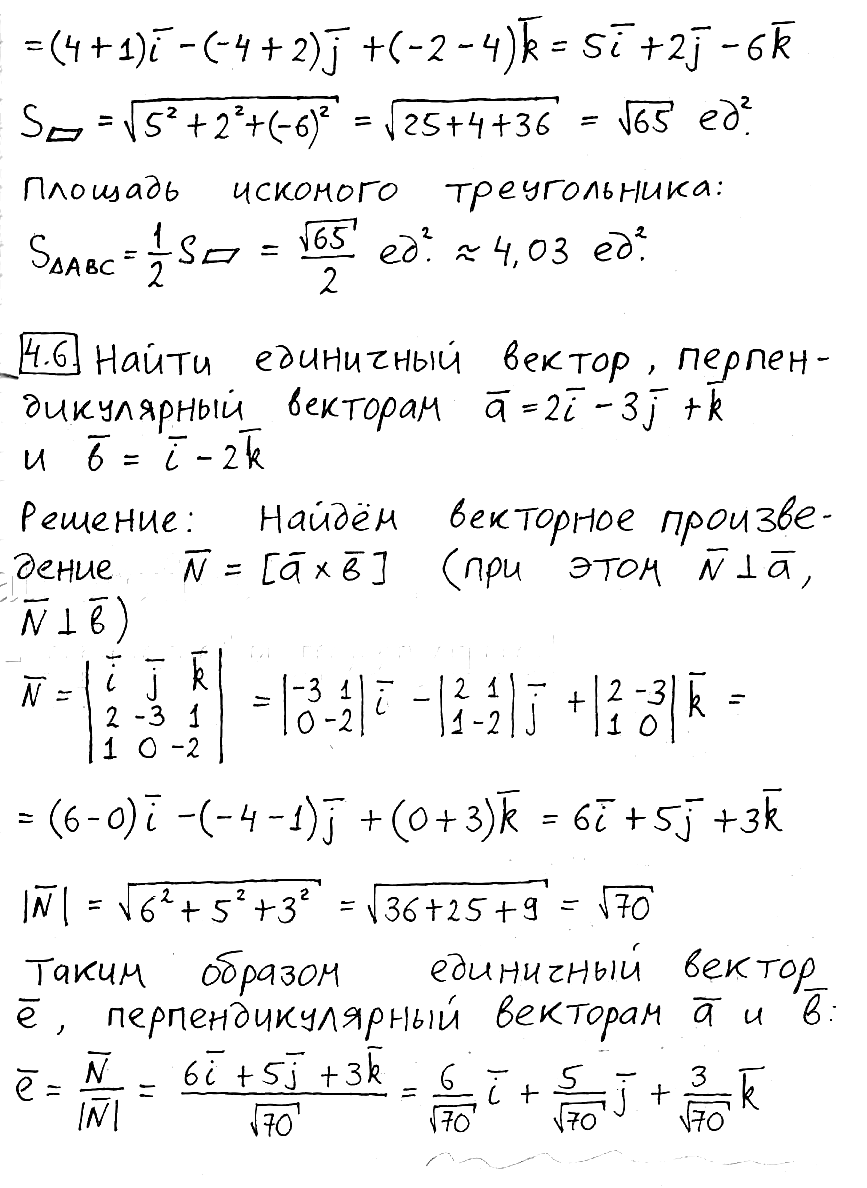 =(4+1)i̅ -(-4+2)j̅ +(-2-4)k̅ = 5i̅ +2j̅ -6k̅
S▱ = √(5²+2²+(-6)²) = √(25+4+36) = √65 ед².
Площадь искомого треугольника:
S△ABC = 1/2 S▱ = √65/2 ед². ≈ 4,03 ед².
4.6 Найти единичный вектор, перпен-
дикулярный векторам a̅ =2i̅ -3j̅ +k̅
и в̅ = i̅ -2k̅
Решение: Найдём векторное произве-
дение N̅ = [a̅ × в̅] (при этом N̅⊥a̅,
N̅⊥в̅)
N̅ = |i̅ j̅ k̅; 2 -3 1; 1 0 -2| = |-3 1; 0 -2| i̅ - |2 1; 1 -2| j̅ + |2 -3; 1 0| k̅ =
= (6-0)i̅ -(-4-1)j̅ +(0+3)k̅ = 6i̅ +5j̅ +3k̅
|N̅| = √(6²+5²+3²) = √(36+25+9) = √70
Таким образом единичный вектор
e̅, перпендикулярный векторам a̅ и в̅:
e̅ = N̅/|N̅| = (6i̅ +5j̅ +3k̅)/√70 = 6/√70 i̅ + 5/√70 j̅ + 3/√70 k̅